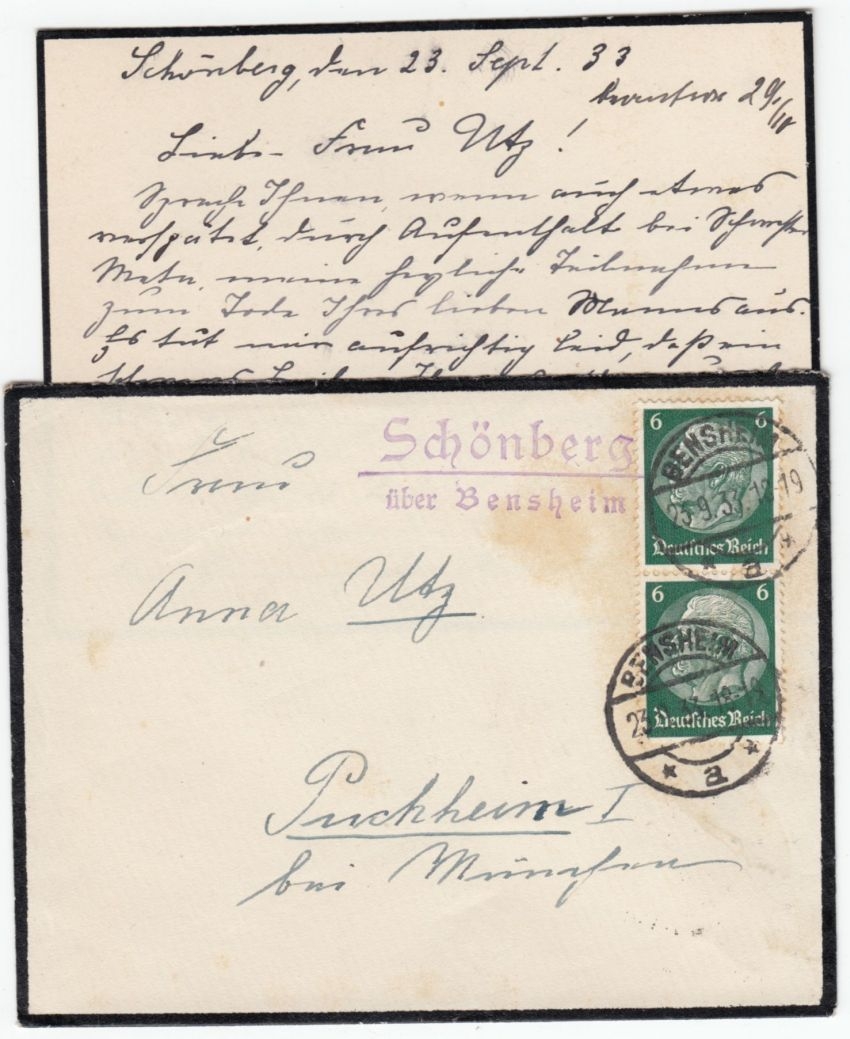 Schönberg, den 23. Sept. 33
29/
Liebe Frau Utz!
Spreche Ihnen, wenn auch etwas
verspätet, durch Aufenthalt bei Schwester
Meta, meine herzliche Teilnahme
zum Tode Ihres lieben Mannes aus.
Es tut mir aufrichtig leid, daß ein
Schönberg
über Bensheim
Frau
Anna Utz
Puchheim I
bei München
6 6
BENSHEIM
23.9.33.18-19
Deutsches Reich
* a *
6 6
BENSHEIM
23.9.33.18-19
Deutsches Reich
* a *